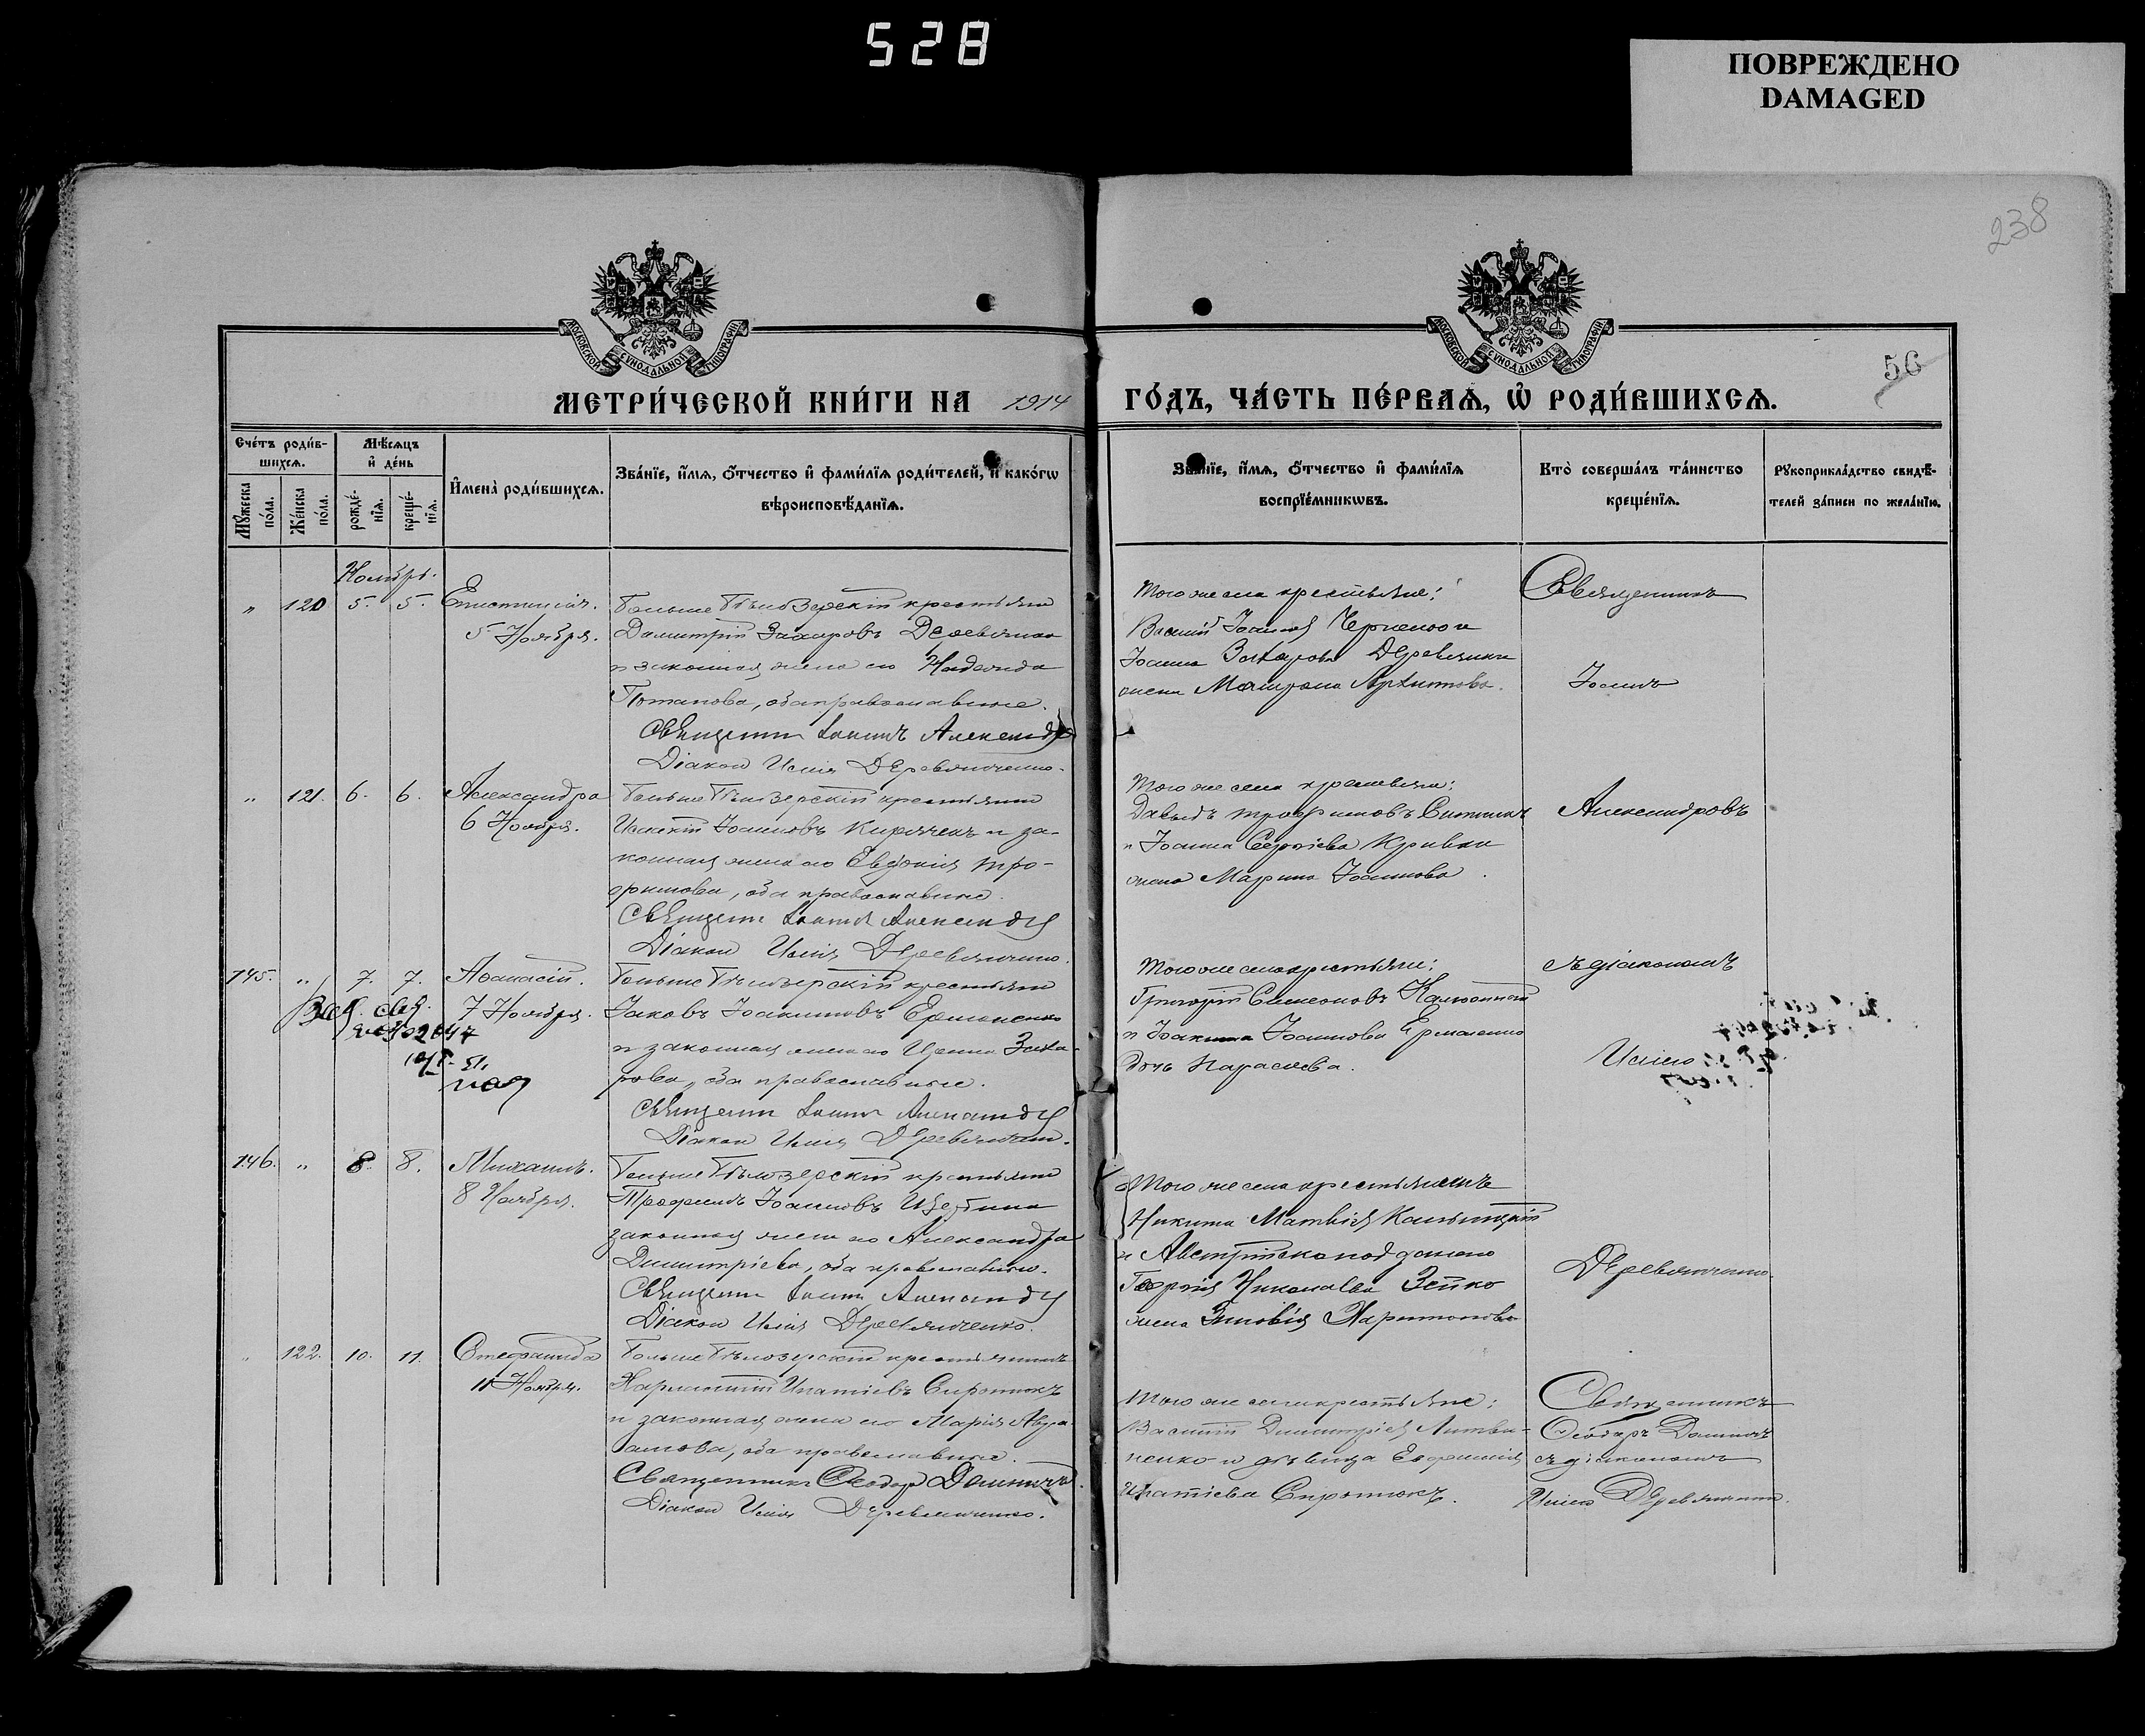 528
ПОВРЕЖДЕНО
DAMAGED
238
МОСКОВСКОЙ СѴНОДАЛЬНОЙ ТИПОГРАФІИ
МОСКОВСКОЙ СѴНОДАЛЬНОЙ ТИПОГРАФІИ
56
МЕТРИ́ЧЕСКОЙ КНИ́ГИ НА 1914
ГО́ДЪ, ЧА́СТЬ ПЕ́РВАѦ, Ѡ РОДИ́ВШИХСѦ.
Сче́тъ роди́в-
шихсѧ.
Мѣ́сѧцъ
и҆ де́нь
Мꙋ́жеска
по́ла.
Же́нска
по́ла.
рожде́-
нїѧ.
креще́-
нїѧ.
И҆мена̀ роди́вшихсѧ.
Зва́нїе, и҆́мѧ, ѻ҆́тчество и҆ фами́лїѧ роди́телей, и҆ како́гѡ
вѣроисповѣ́данїѧ.
Зва́нїе, и҆́мѧ, ѻ҆́тчество и҆ фами́лїѧ
воспрїе́мникѡвъ.
Кто̀ соверша́лъ та́инство
креще́нїѧ.
Рꙋкоприкла́дство свидѣ́-
телей за́писи по жела́нїю.
Ноябрь.
" 120 5. 5. Епистимія.
5 Ноября.
Больше Бѣлозерскій крестьянин
Димитрій Захаровъ Деревянко
и законная жена его Надежда
Потапова, оба православные.
Священник Іоаннъ Александров
Діакон Исаія Деревянченко.
Того же села крестьяне:
Василій Іоаннов Черненко и
Іоанна Захарова Деревянки
жена Матрона Архипова.
Священникъ
Іоаннъ
" 121. 6. 6. Александра
6 Ноября.
Больше Бѣлозерскій крестьянин
Іоанновъ Киричекъ и за-
конная жена его Евдокия Тро-
фимова, оба православные.
Священник Іоаннъ Александров
Діакон Исаія Деревянченко.
Того же села крестьяне:
Давыдъ Трофимовъ
и Іоанна Сергіева Кривки
жена Марина Іоаннова.
Александровъ
145. " 7. 7. Аѳанасій.
7 Ноября.
Больше Бѣлозерскій крестьянин
Іаковъ Іоакимовъ Ермоленко
и законная жена его Ирина Заха-
рова, оба православные.
Священник Іоаннъ Александров
Діакон Исаія Деревянченко.
Того же села крестьяне:
Григорій Симеоновъ Калюжный
и Іоакима Іоаннова Ермоленко
дочь Параскева.
съ діакономъ
Исаіею
146. " 8. 8. Михаилъ.
8 Ноября.
Больше Бѣлозерскій крестьянин
Трофимъ Іоанновъ Щербина
законная жена его Александра
Димитріева, оба православные.
Священник Іоаннъ Александров
Діакон Исаія Деревянченко.
Того же села крестьянинъ
Никита Матвіев
и Австрійско подданого
Георгія Николаева Зейко
жена Зиновія Харитонова
Деревянченко.
" 122. 10. 11. Стефанида
11 Ноября.
Больше Бѣлозерскій крестьянинъ
Харлампій Ипатіевъ Сиротюкъ
и законная жена его Марія Авра-
амова, оба православные.
Священникъ Ѳеодор Данничъ
Діакон Исаія Деревянченко.
Того же села крестьяне:
Василій Димитріев Литви-
ненко и дѣвица Евфимія
Ипатіева Сиротюкъ.
Священникъ
Ѳеодоръ
съ діакономъ
Исаіею Деревянченко.